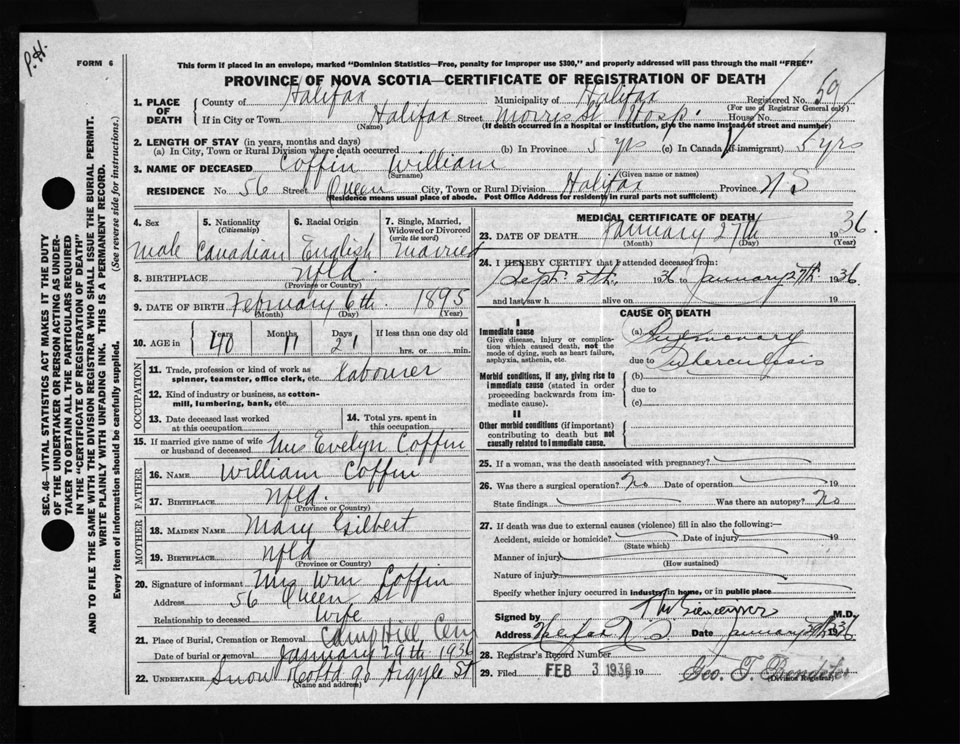 P.H.
FORM 6
This form if placed in an envelope, marked "Dominion Statistics—Free, penalty for improper use $300," and properly addressed will pass through the mail "FREE"
PROVINCE OF NOVA SCOTIA—CERTIFICATE OF REGISTRATION OF DEATH
1. PLACE OF DEATH County of Halifax Municipality of Halifax Registered No. 59
(For use of Registrar General only)
If in City or Town Halifax Street Morris St Hosp. House No.
(Name) (If death occurred in a hospital or institution, give the name instead of street and number)
2. LENGTH OF STAY (in years, months and days)
(a) In City, Town or Rural Division where death occurred (b) In Province 5 yrs (c) In Canada (if immigrant) 5 yrs
3. NAME OF DECEASED Coffin William
(Surname) (Given name or names)
RESIDENCE No. 56 Street Queen City, Town or Rural Division Halifax Province N S
(Residence means usual place of abode. Post Office Address for residents in rural parts not sufficient)
4. Sex 5. Nationality (Citizenship) 6. Racial Origin 7. Single, Married, Widowed or Divorced (write the word)
Male Canadian English Married
8. BIRTHPLACE Nfld.
(Province or Country)
9. DATE OF BIRTH February 6th. 1895
(Month) (Day) (Year)
10. AGE in Years Months Days If less than one day old
40 11 21 hrs. or min.
OCCUPATION
11. Trade, profession or kind of work as spinner, teamster, office clerk, etc. labourer
12. Kind of industry or business, as cotton-mill, lumbering, bank, etc.
13. Date deceased last worked at this occupation 14. Total yrs. spent in this occupation
15. If married give name of wife or husband of deceased Mrs Evelyn Coffin
FATHER
16. NAME William Coffin
17. BIRTHPLACE Nfld.
(Province or Country)
MOTHER
18. MAIDEN NAME Mary Gilbert
19. BIRTHPLACE Nfld
(Province or Country)
20. Signature of informant Mrs Wm Coffin
Address 56 Queen St
Relationship to deceased Wife
21. Place of Burial, Cremation or Removal Camp Hill Cem
Date of burial or removal January 29th 1936
22. UNDERTAKER Snow 90 Argyle St
(Name and address)
MEDICAL CERTIFICATE OF DEATH
23. DATE OF DEATH January 27th 1936.
(Month) (Day) (Year)
24. I HEREBY CERTIFY that I attended deceased from:
Sept. 5th, 1936 to January 27th. 1936
and last saw h alive on 19
CAUSE OF DEATH
I
Immediate cause
Give disease, injury or complication which caused death, not the mode of dying, such as heart failure, asphyxia, asthenia, etc.
(a) Pulmonary
due to Tuberculosis
Morbid conditions, if any, giving rise to immediate cause (stated in order proceeding backwards from immediate cause).
(b)
due to
(c)
II
Other morbid conditions (if important) contributing to death but not causally related to immediate cause.
25. If a woman, was the death associated with pregnancy?
26. Was there a surgical operation? No Date of operation 19
State findings Was there an autopsy? No
27. If death was due to external causes (violence) fill in also the following:—
Accident, suicide or homicide? Date of injury 19
(State which)
Manner of injury
(How sustained)
Nature of injury
Specify whether injury occurred in industry, in home, or in public place
Signed by M.D.
Address Halifax N S Date January 1936
28. Registrar's Record Number
29. Filed FEB 3 1936 19 Geo. T.
(Division Registrar)
SEC. 46—VITAL STATISTICS ACT MAKES IT THE DUTY
OF THE UNDERTAKER OR PERSON ACTING AS UNDER-
TAKER TO OBTAIN ALL THE PARTICULARS REQUIRED
IN THE "CERTIFICATE OF REGISTRATION OF DEATH"
AND TO FILE THE SAME WITH THE DIVISION REGISTRAR WHO SHALL ISSUE THE BURIAL PERMIT.
WRITE PLAINLY WITH UNFADING INK. THIS IS A PERMANENT RECORD.
Every item of information should be carefully supplied. (See reverse side for instructions.)